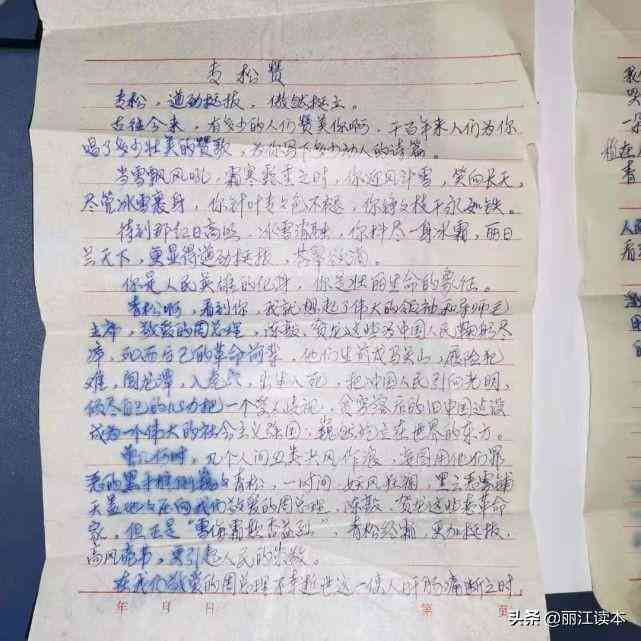 青松赞
青松,遒劲挺拔,傲然挺立。
古往今来,有多少的人们赞美你啊,千百年来人们为你
唱了多少壮美的赞歌,为你写下多少动人的诗篇。
当雪飘风吼,霜寒 之时,你迎风沙雪,笑向长天。
尽管冰雪裹身,你针叶 色不褪,你 枝干永如铁。
待到那红日高照,冰雪消融,你抖尽一身水霜,丽日
兰天下,更显得遒劲挺拔,苍翠
你是人民英雄的化身,你是壮丽生命的象征。
青松啊,看到你,我就想起了伟大的领袖和导师毛
主席,敬爱的周总理,陈毅、贺龙这些为中国人民鞠躬尽
瘁,死而 自己的革命前辈,他们生前戎马关山,历险犯
难,闯龙潭,入虎穴,出生入死,把中国人民引向光明,
倾尽自己的心力把一个受人歧视,贫穷落后的旧中国建设
成为一个伟大的社会主义强国,巍然屹立在世界的东方。
曾几何时,几个人间丑类兴风作浪,妄图用他们罪
恶的黑手 青松,一时间,妖风狂啸,黑云毒雾铺
天盖地 向我们敬爱的周总理,陈毅、贺龙这些老革命
家,但正是“雪侮霜欺香益烈”,青松经霜,更加挺拔,
高风亮节,更引起人民的崇敬。
在我们敬爱的周总理不幸逝世这一使人肝肠痛断之时,
年 月 日 第 页
头条 @丽江读本